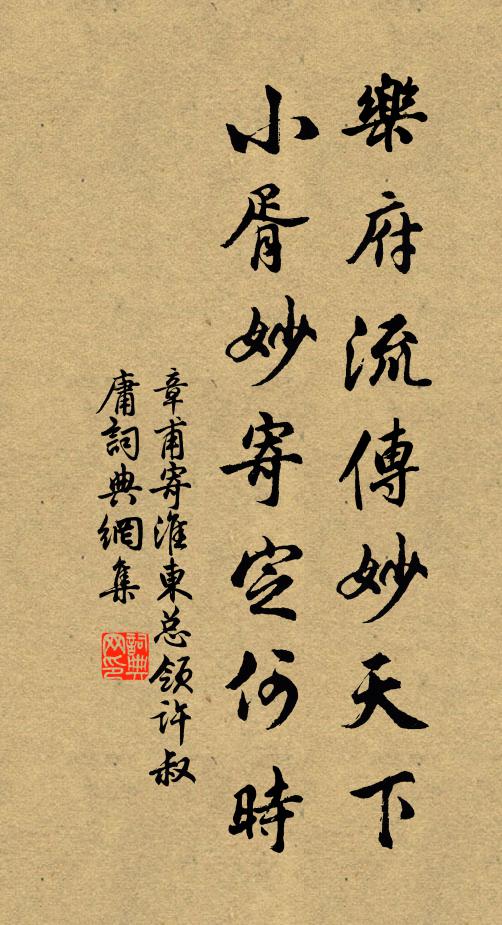 樂府流傳妙天下
小胥妙寄定何時
章甫寄淮東总领许叔
庸詞典網集
詞典网印